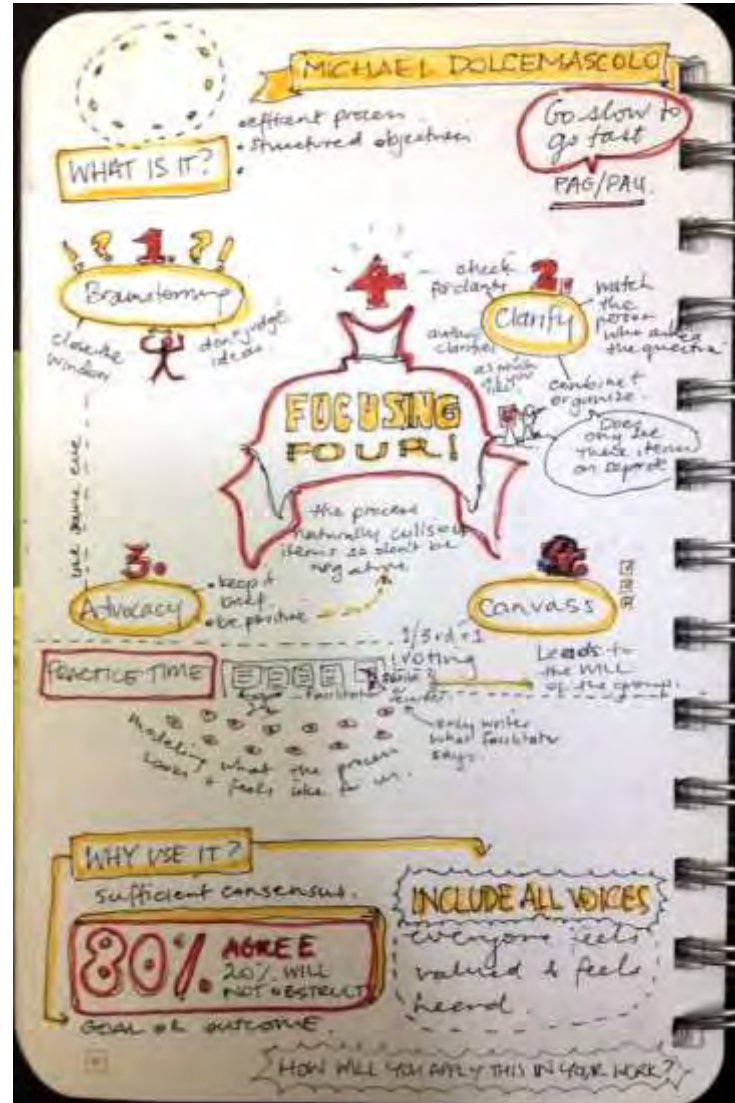 MICHAEL DOLCEMASCOLO
• efficient process
• structured objectives
WHAT IS IT?
Go slow to
go fast
PAG/PAU.
! ? 1. ? !
Brainstorming
close the
window
don't judge
ideas
4
FOCUSING
FOUR!
2.
Clarify
check
for clarity
author
clarifies
as much
watch
the
person
who asked
the question
combine +
organize.
Does
these items
the process
naturally culls out
items so don't be
negative
use same cue
3.
Advocacy
• keep it
brief
• be positive
Canvass
1/3rd + 1
voting
Leads to
the WILL
of the group.
PRACTICE TIME
Facilitator
only writes
what facilitator
says.
modeling what the process
looks + feels like for us.
WHY USE IT?
sufficient consensus.
80% AGREE
20% WILL
NOT OBSTRUCT
GOAL OR OUTCOME.
INCLUDE ALL VOICES
everyone feels
valued & feels
heard.
HOW WILL YOU APPLY THIS IN YOUR WORK?